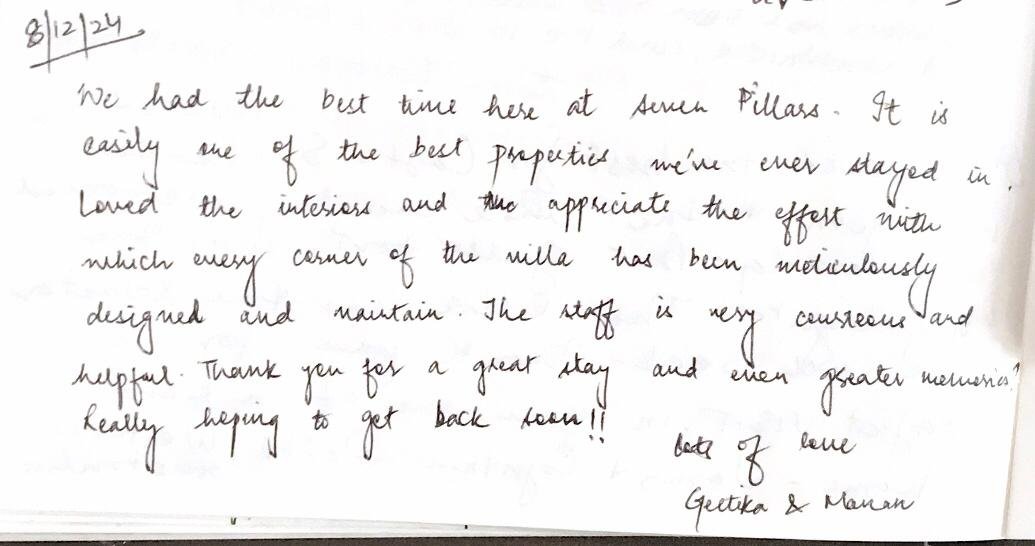 8/12/24
We had the best time here at seven Pillars. It is
easily one of the best properties we've ever stayed in.
Loved the interiors and appreciate the effort with
which every corner of the villa has been meticulously
designed and maintain. The staff is very courteous and
helpful. Thank you for a great stay and even greater memories!
Really hoping to get back soon!!
lots of love
Geetika & Manan